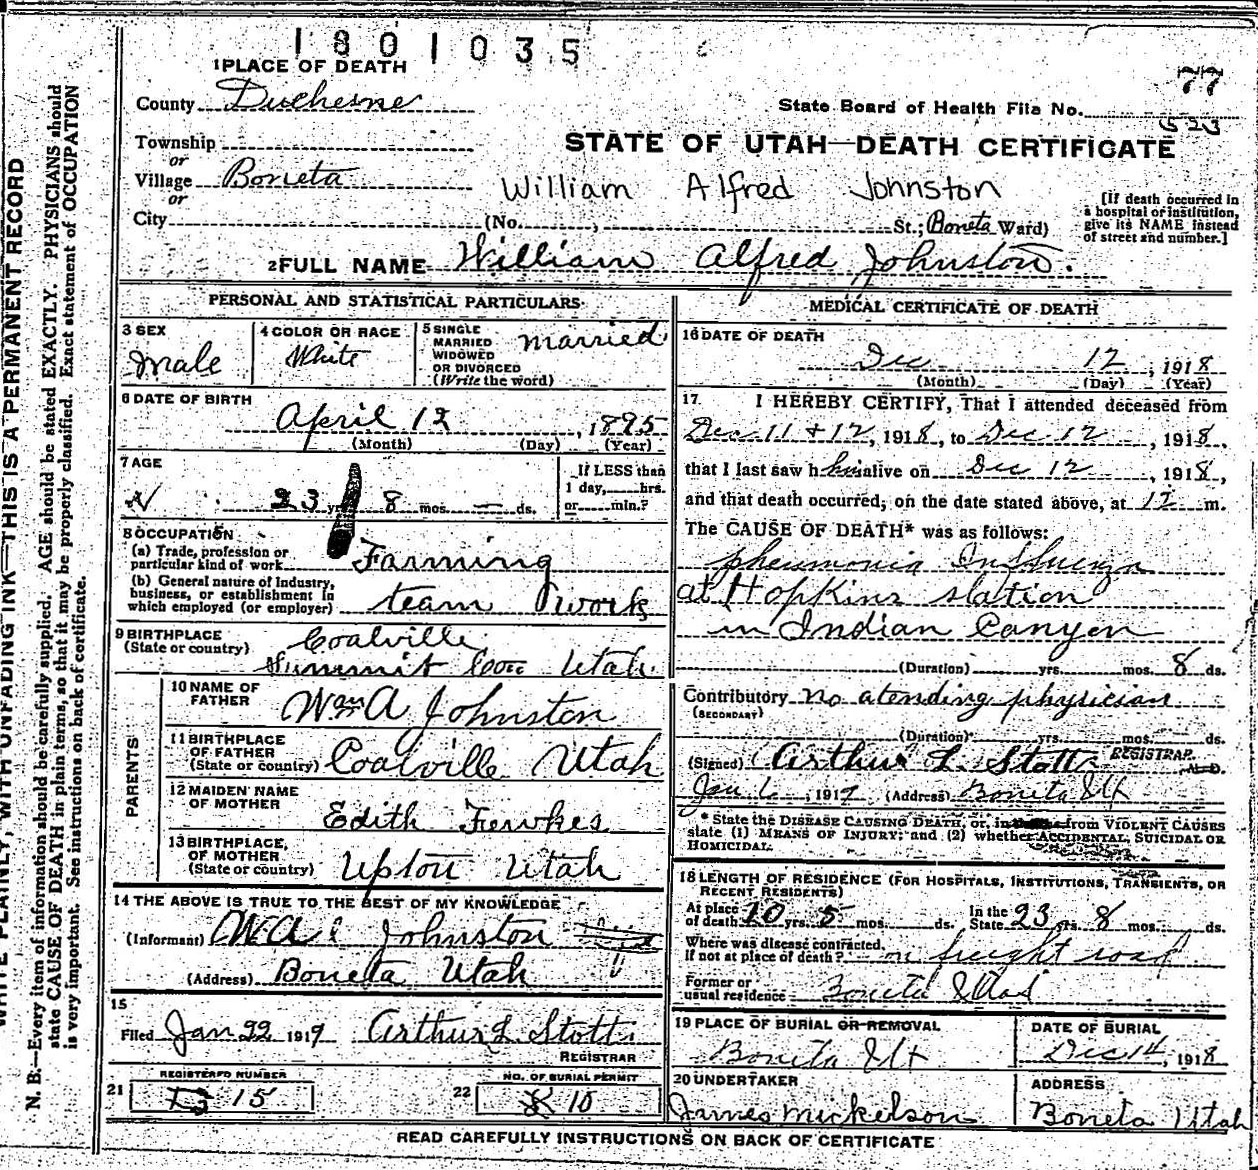 1801035
77
1 PLACE OF DEATH
County Duchesne
State Board of Health File No.
523
STATE OF UTAH—DEATH CERTIFICATE
Township
or
Village Boneta
or
William Alfred Johnston
City (No. , St.; Boneta Ward)
[If death occurred in
a hospital or institution,
give its NAME instead
of street and number.]
2 FULL NAME William Alfred Johnston.
PERSONAL AND STATISTICAL PARTICULARS
3 SEX
Male
4 COLOR OR RACE
White
5 SINGLE
MARRIED
WIDOWED
OR DIVORCED
(Write the word)
married
6 DATE OF BIRTH
April 12 , 1895
(Month) (Day) (Year)
7 AGE
23 yrs. 8 mos. — ds.
If LESS than
1 day, hrs.
or min.?
8 OCCUPATION
(a) Trade, profession or
particular kind of work Farming
(b) General nature of industry,
business, or establishment in
which employed (or employer) team work
9 BIRTHPLACE
(State or country)
Coalville
Summit Coun Utah.
PARENTS
10 NAME OF
FATHER
Wm A Johnston
11 BIRTHPLACE
OF FATHER
(State or country) Coalville Utah
12 MAIDEN NAME
OF MOTHER
Edith Fewkes
13 BIRTHPLACE,
OF MOTHER
(State or country) Upton Utah
14 THE ABOVE IS TRUE TO THE BEST OF MY KNOWLEDGE
(Informant) W A Johnston
(Address) Boneta Utah
15
Filed Jan 22 1919 Arthur L Stott
REGISTRAR
21 REGISTERED NUMBER
15
22 NO. OF BURIAL PERMIT
10
MEDICAL CERTIFICATE OF DEATH
16 DATE OF DEATH
Dec 12 , 1918
(Month) (Day) (Year)
17 I HEREBY CERTIFY, That I attended deceased from
Dec 11 + 12, 1918, to Dec 12 , 1918,
that I last saw him alive on Dec 12 , 1918,
and that death occurred, on the date stated above, at 12 m.
The CAUSE OF DEATH* was as follows:
pheumonia Influenza
at Hopkins station
in Indian Canyon
(Duration) yrs. mos. 8 ds.
Contributory No atending physician
(SECONDARY)
(Duration) yrs. mos. ds.
(Signed) Arthur L. Stott REGISTRAR
Jan , 1919 (Address) Boneta Ut
* State the DISEASE CAUSING DEATH, or, in from VIOLENT CAUSES
state (1) MEANS OF INJURY; and (2) whether ACCIDENTAL, SUICIDAL OR
HOMICIDAL.
18 LENGTH OF RESIDENCE (FOR HOSPITALS, INSTITUTIONS, TRANSIENTS, OR
RECENT RESIDENTS)
At place of death 10 yrs. 5 mos. ds. In the State 23 yrs. 8 mos. ds.
Where was disease contracted,
if not at place of death? on freight road
Former or
usual residence Boneta Utah
19 PLACE OF BURIAL OR REMOVAL
Boneta Ut
DATE OF BURIAL
Dec 14, 1918
20 UNDERTAKER
James Mickelson
ADDRESS
Boneta Utah
READ CAREFULLY INSTRUCTIONS ON BACK OF CERTIFICATE
WRITE PLAINLY, WITH UNFADING INK—THIS IS A PERMANENT RECORD
N. B.—Every item of information should be carefully supplied. AGE should be stated EXACTLY. PHYSICIANS should
state CAUSE OF DEATH in plain terms, so that it may be properly classified. Exact statement of OCCUPATION
is very important. See instructions on back of certificate.